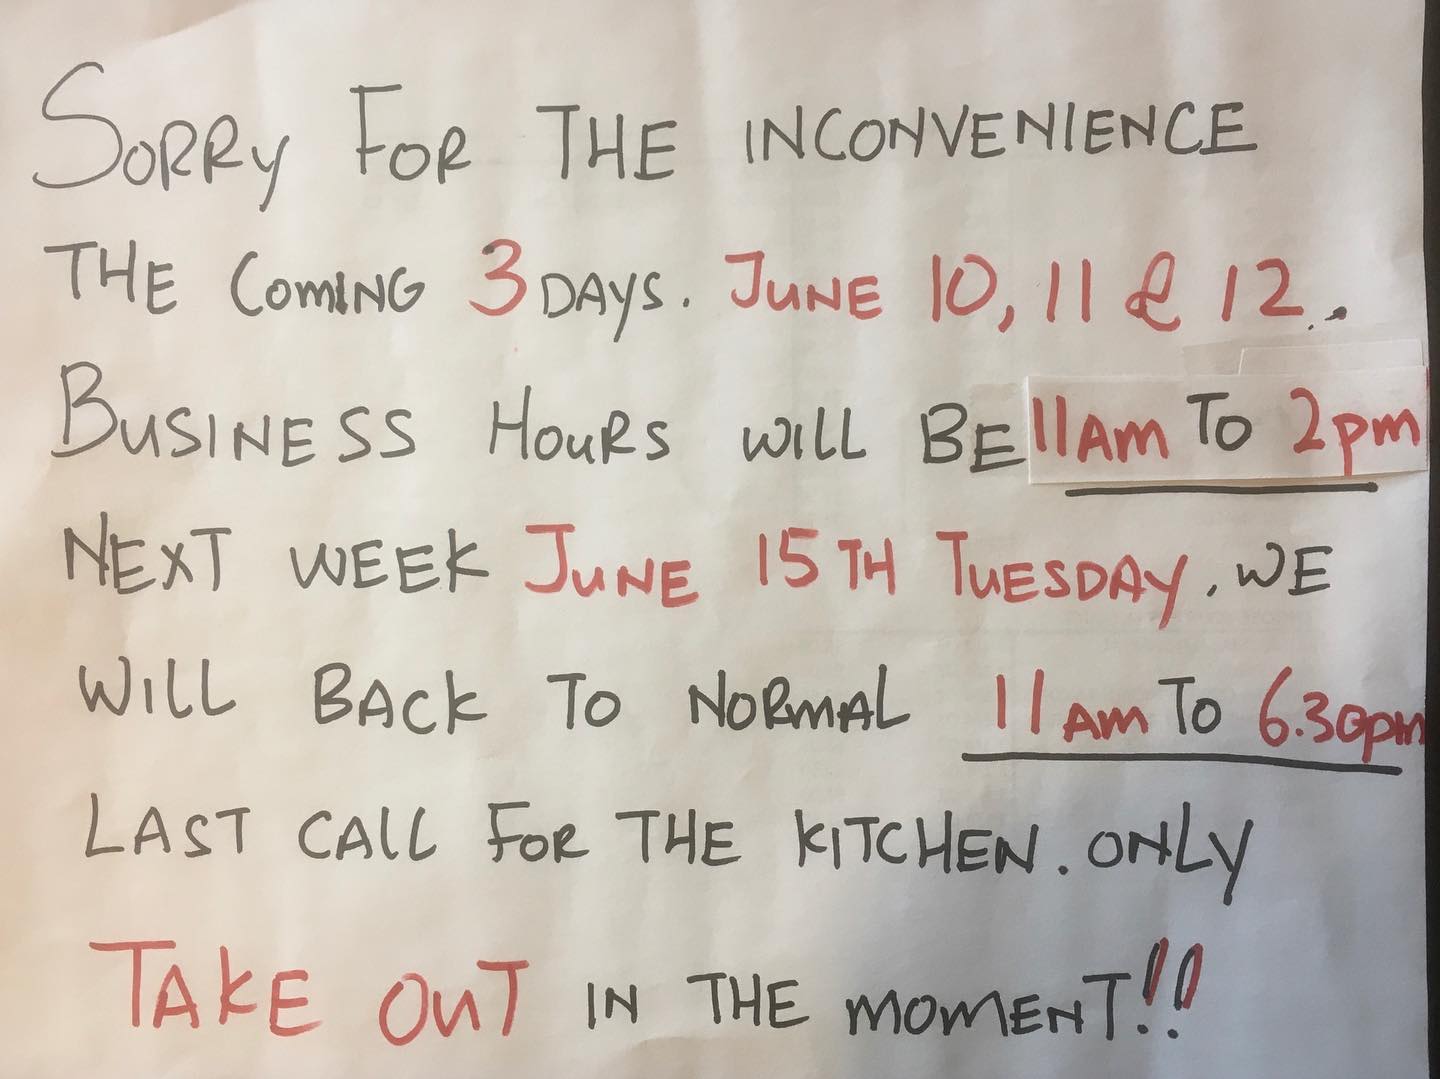 SORRY FOR THE INCONVENIENCE
THE COMING 3 DAYS. JUNE 10, 11 & 12..
BUSINESS HOURS WILL BE 11AM TO 2PM
NEXT WEEK JUNE 15TH TUESDAY, WE
WILL BACK TO NORMAL 11AM TO 6.30PM
LAST CALL FOR THE KITCHEN. ONLY
TAKE OUT IN THE MOMENT!!